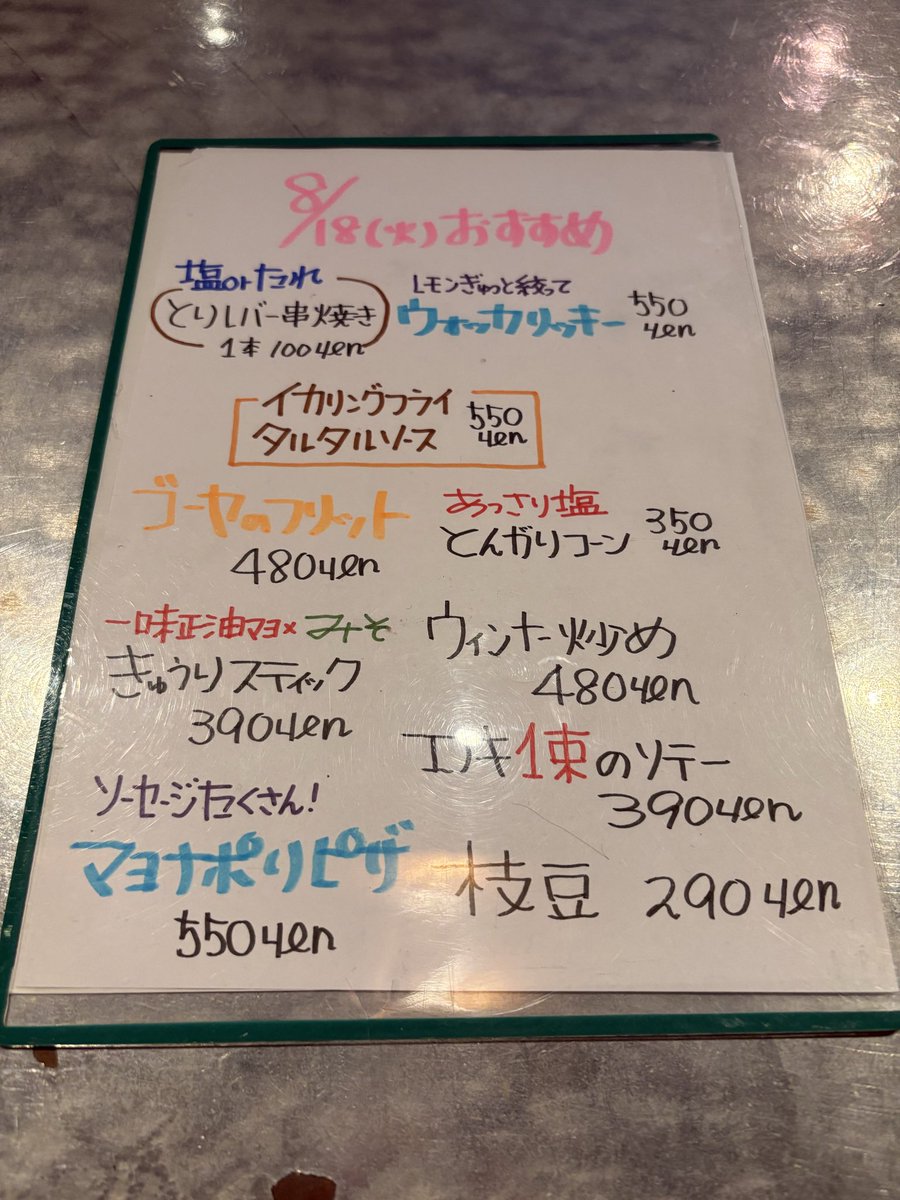 8/18(火)おすすめ
塩orたれ
とりレバー串焼き
1本 100yen
レモンぎゅっと絞って
ウォッカリッキー 550yen
イカリングフライ
タルタルソース 550yen
ゴーヤのフリット
480yen
あっさり塩
とんがりコーン 350yen
一味正油マヨ×みそ
きゅうりスティック
390yen
ウィンナー炒め
480yen
エノキ1束のソテー
390yen
ソーセージたくさん!
マヨナポリピザ
550yen
枝豆 290yen